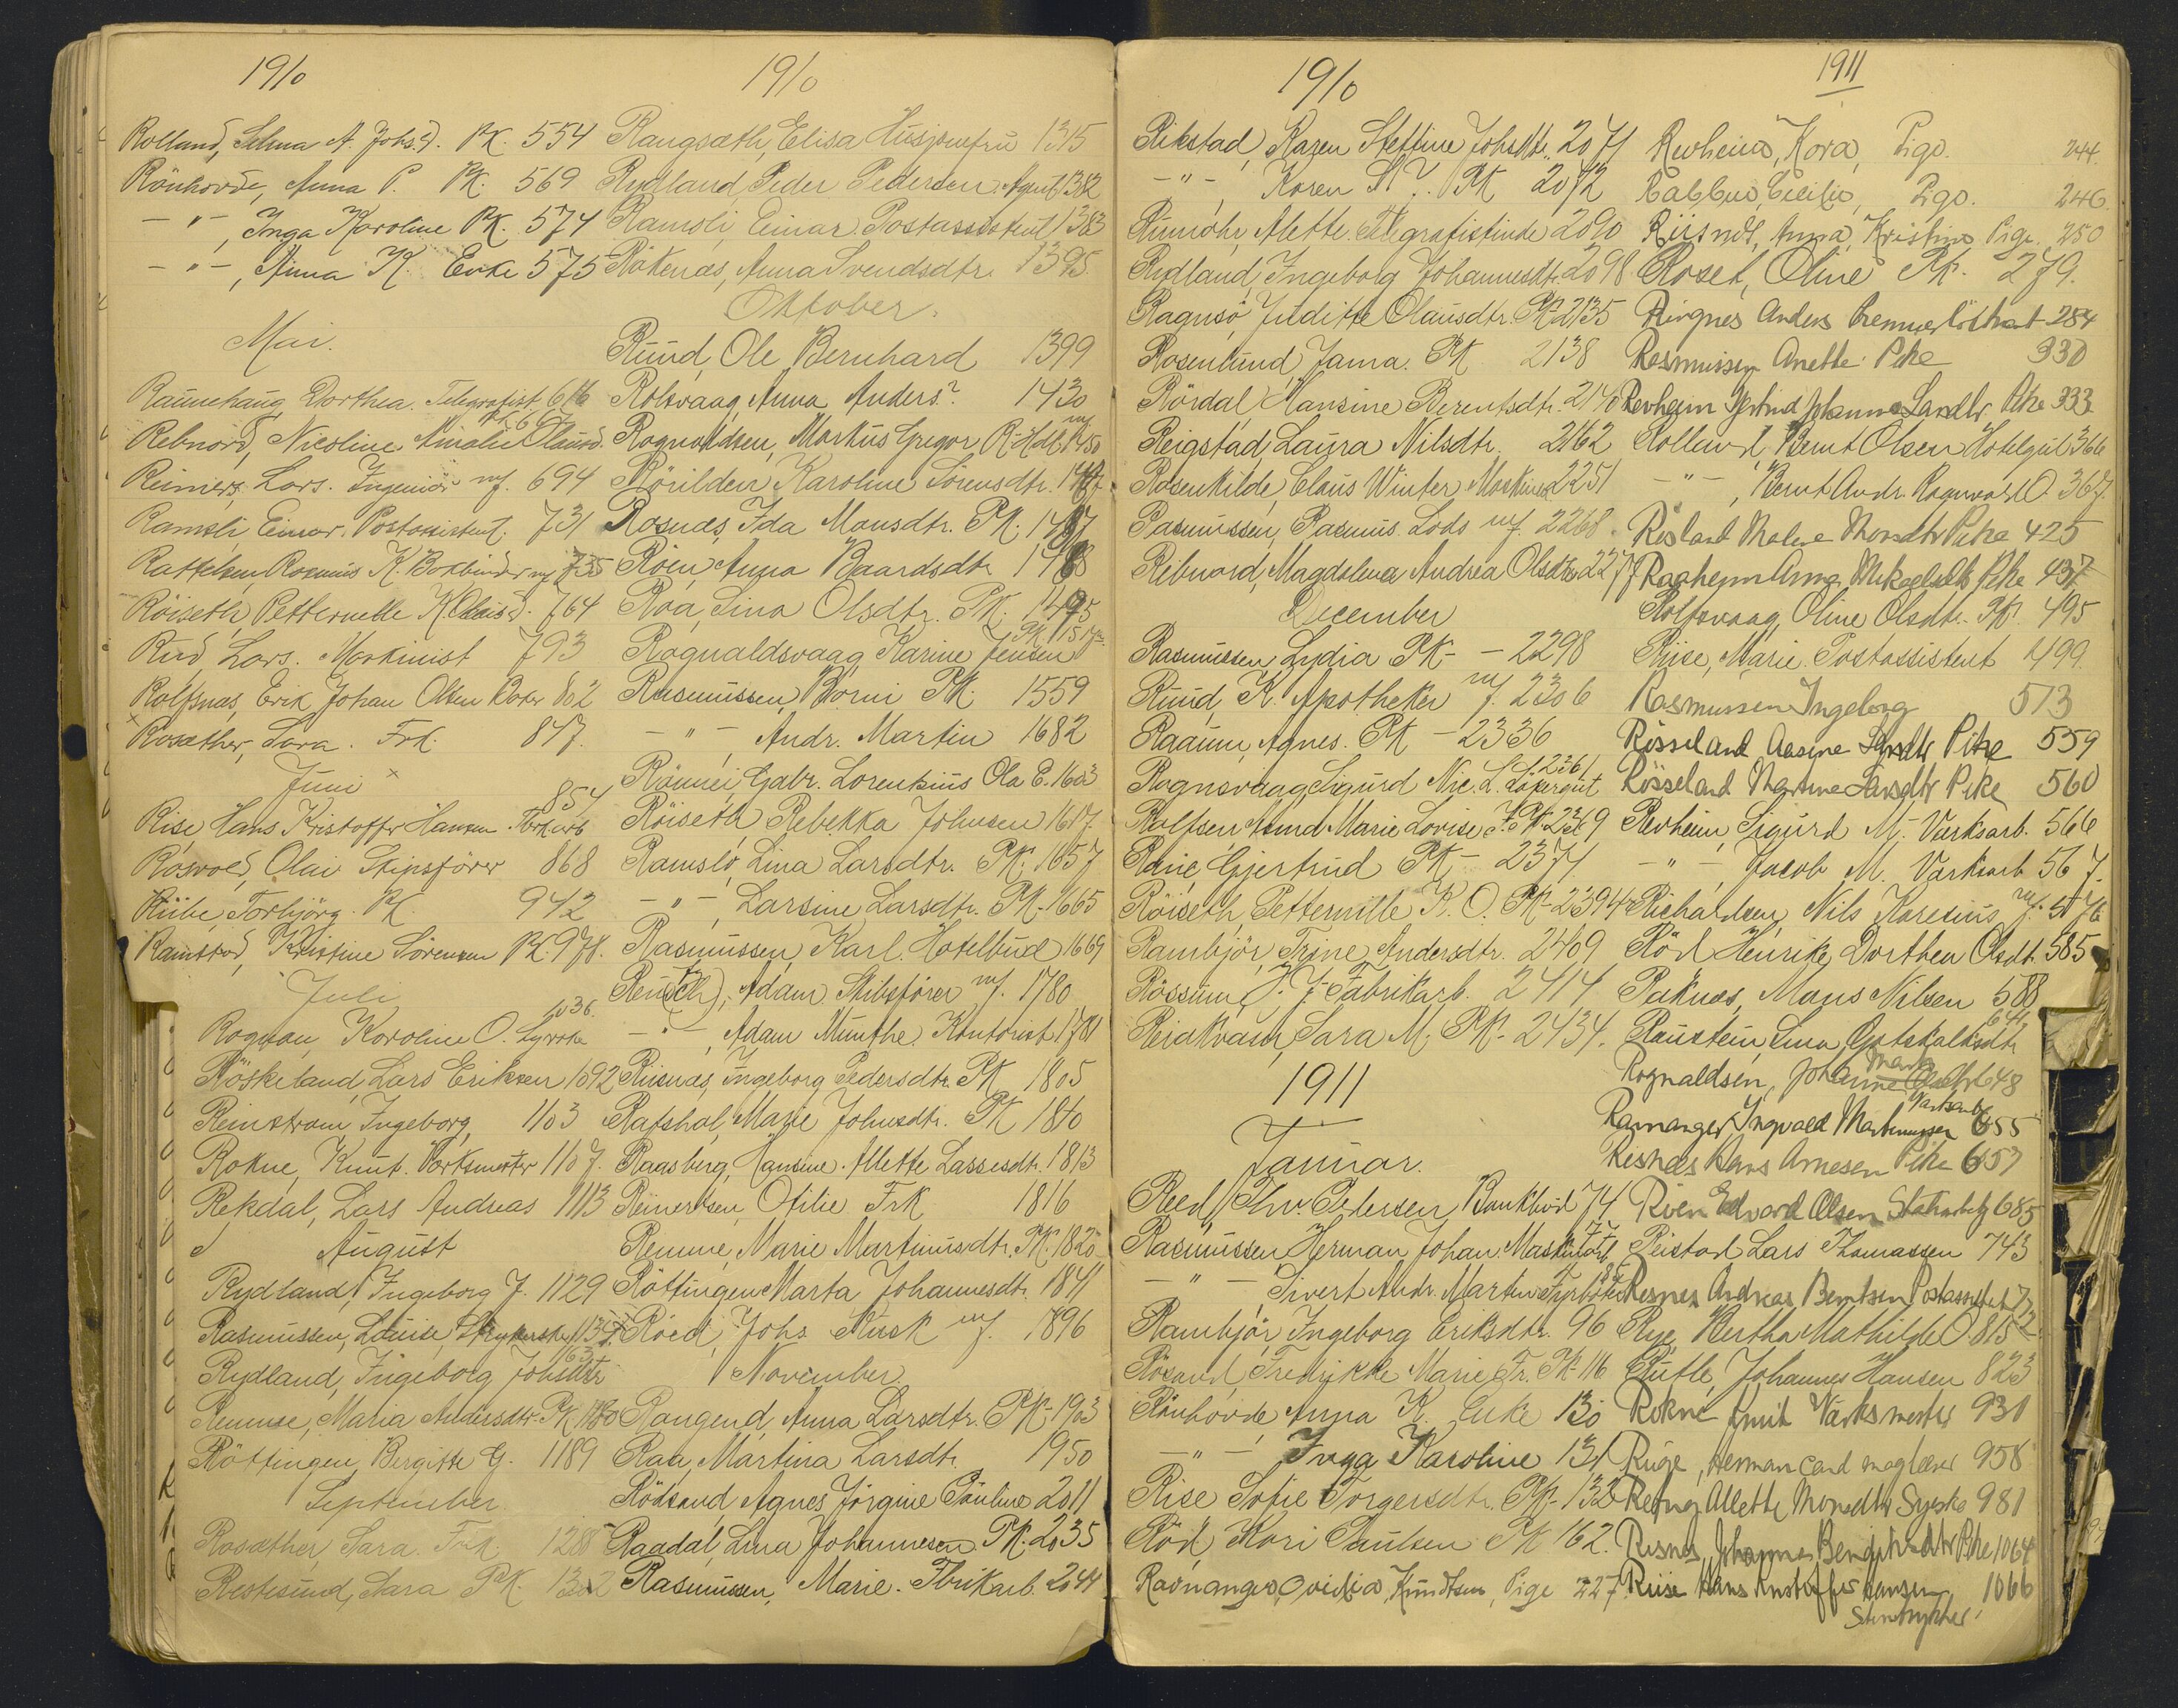 1910
Rolland, Selma A. Johs.d. PK. 554
Rönhovde, Anna P. PK. 569
— " —, Inga Karoline PK. 574
— " —, Anna K. Enke 575
Mai.
Raunehaug, Dorthea. Telegrafist. 616
Rebnord, Nicoline Amalie Olausd. PK 667
Reimers, Lars. Ingeniör mf. 694
Ramsli, Einar. Postassistent. 731
Raffelsen Rasmus K. Bokbinder mf 735
Röiseth, Petternelle K. Olaisd. 764
Rud, Lars. Maskinist 793
Rolfsnæs, Erik Johan Olsen 802
Rosæther, Sara. Frk. 847.
Juni
Rise, Hans Kristoffer Hansen. 854
Rosvold, Olai Skipsförer 868
Riibe, Torbjörg. PK. 942
Ramstad, Kristine Sörensen PK. 978.
Juli
Rognan, Karoline O. Syerske 1036.
Röskeland, Lars Eriksen 1092
Reinstrom Ingeborg 1103
Rokne, Knut. Værksmester 1107.
Rekdal, Lars Andreas 1113
August
Rydland, Ingeborg J. 1129
Rasmussen, Louise, Strykerske 1137
Rydland, Ingeborg Johsdtr 1163
Remme, Maria Andersdtr. PK 1180
Röttingen, Birgitte G. 1189
September
Rosæther, Sara. Frk. 1288
Restesund, Sara PK. 1302
1910
Rangsæth, Elisa Husjomfru 1315
Rydland, Peder Pedersen. Agent 1382
Ramsli, Einar Postassistent 1383
Röknæs, Anna Svendsdtr. 1395
Oktober.
Ruud, Ole Bernhard 1399
Rolsvaag, Anna Anders? 1430
Rognaldsen, Markus Gregor, R. Hdl. mf 1450
Rörilden Karoline Sörensdtr.
Rosnæs, Ida Monsdtr. PK. 1487
Röen, Anna Baardsdtr 1488
Roa, Lina Olsdtr. PK. 1495
Rognaldsvaag Karine Jensen PK.
Rasmussen, Borni PK. 1559
— " — Andr. Martin 1682
Rönnei, Gabr. Lorentsius Ola E. 1603
Röiseth Rebekka Johnsen 1617.
Ramslö, Lina Larsdtr. PK. 1657
— " —, Larsine Larsdtr. PK. 1665
Rasmussen, Karl. Hotelbud 1669
Reusch, Adam. Skibsförer mf. 1780
— " —, Adam Munthe. Kontorist 1781
Risnæs, Ingeborg Pedersdtr. PK 1805
Rafshol, Marie Johnsdtr. PK 1810
Raasberg, Hansine Allette Lassesdtr. 1813
Reinertsen, Otilie Frk 1816
Remme, Marie Martinusdtr. PK. 1820
Röttingen Marta Johannesdtr. 1841
Röed, Johs Kusk mf. 1896
November.
Raugend, Anna Larsdtr. PK. 1903
Raa, Martina Larsdtr. 1950
Rödsand, Agnes Jörgine Pauline 2011
Raadal, Lina Johannesen PK. 2035
Rasmussen, Marie. Fbrikarb. 2044
1910
Rikstad, Karen Steffine Johsdtr. 2071
— " —, Karen St. J. PK 2072
Rumohr, Mette. Telegrafistinde 2090
Rydland, Ingeborg Johannesdtr. 2098
Ragnsö, Juditte Olausdtr. PK. 2135
Rosenlund, Jama. PK 2138
Rördal, Hansine Berentsdtr. 2140
Reigstad, Laura Nilsdtr. 2162
Rosenkilde, Claus Winter, Maskinist 2251
Rasmussen, Rasmus. Lods mf. 2268.
Rebnord, Magdalena Andrea Olsdtr 2277
December
Rasmussen, Lydia PK — 2298
Ruud, K. Apotheker mf. 2306
Raaum, Agnes. PK — 2336
Rognsvaag, Sigurd Nic. L. Löpergut 2361
Rolfsen, Asmd. Marie Lovise J. PK. 2369
Rane, Gjertrud PK. — 2374
Röiseth, Petternille K. O. PK. 2394
Rambjör, Trine Andersdtr. 2409
Rössum, J. J. Fabrikarb. 2414
Reiakvam, Sara M. PK. 2434.
1911
Januar.
Reed, Thv. Pedersen Bankbud 74
Rasmussen, Herman Johan. Maskinarb. 77
— " — Sivert Andr. Martin Fyrböter
Rambjör, Ingeborg Eriksdtr. 96
Rösand, Fredrikke Marie Fr. PK. 116
Rönhovde Anna K. Enke 130
— " — Inga Karoline 131
Rise Sofie Torgersdtr. PK. 132
Röd, Kari Paulsen PK 162.
Ravnanger, Ovidia, Knudtsen, Pige 227
1911
Revheim, Kora, Pige. 244.
Rabben, Cecilie, Pige. 246.
Riisnds, Anna, Kristine Pige. 250
Roset, Oline PK. 279.
Ringnes Anders 284
Rasmussen Anette Pike 330
Revheim Gjertrud Johanna Larsdtr. Pike 333
Rolland, Bernt Olsen Hotelgut 366
— " —, Bernt Andr. Ragnvard O. 367.
Risland Malene Monsdtr Pike 425
Ragheim Anna Mikaelsdtr Pike 437
Rolfsvaag, Oline Olsdtr. PK. 495
Riise, Marie. Postassistent 499.
Rasmussen Ingeborg 513
Rösseland Aasine Larsdtr Pike 559
Rösseland Martine Larsdtr Pike 560
Revheim, Sigurd M. Værksarb. 566
— " —, Jacob M. Værksarb 567.
Richardsen, Nils Karesius mf. 576
Röd Henrike, Dorthea Olsdt. 585
Röknæs, Mons Nilsen 588
Raustein, Lina Gotskalksdtr 641
Rognaldsen, Johanne Marta Olsdtr 648
Ramanger Ingvald Martinussen Værksarb 655
Resnes Hans Arnesen Pike 657
Röen Edvard Olsen Stuharbdg 685
Reistad Lars Thomassen 743
Resnes Andreas Berntsen Postassistent 772
Rye, Bertha Mathilde O. 815
Rutle, Johannes Hansen 823
Rokne Knut Værksmester 930
Ruge, Herman Cand mag lærer 958
Reing Allette Monsdtr Syerske 981
Risnes, Johanne Bengtsdtr Pike 1064
Riise Hans Kristoffer Hansen, Stentrykker 1066